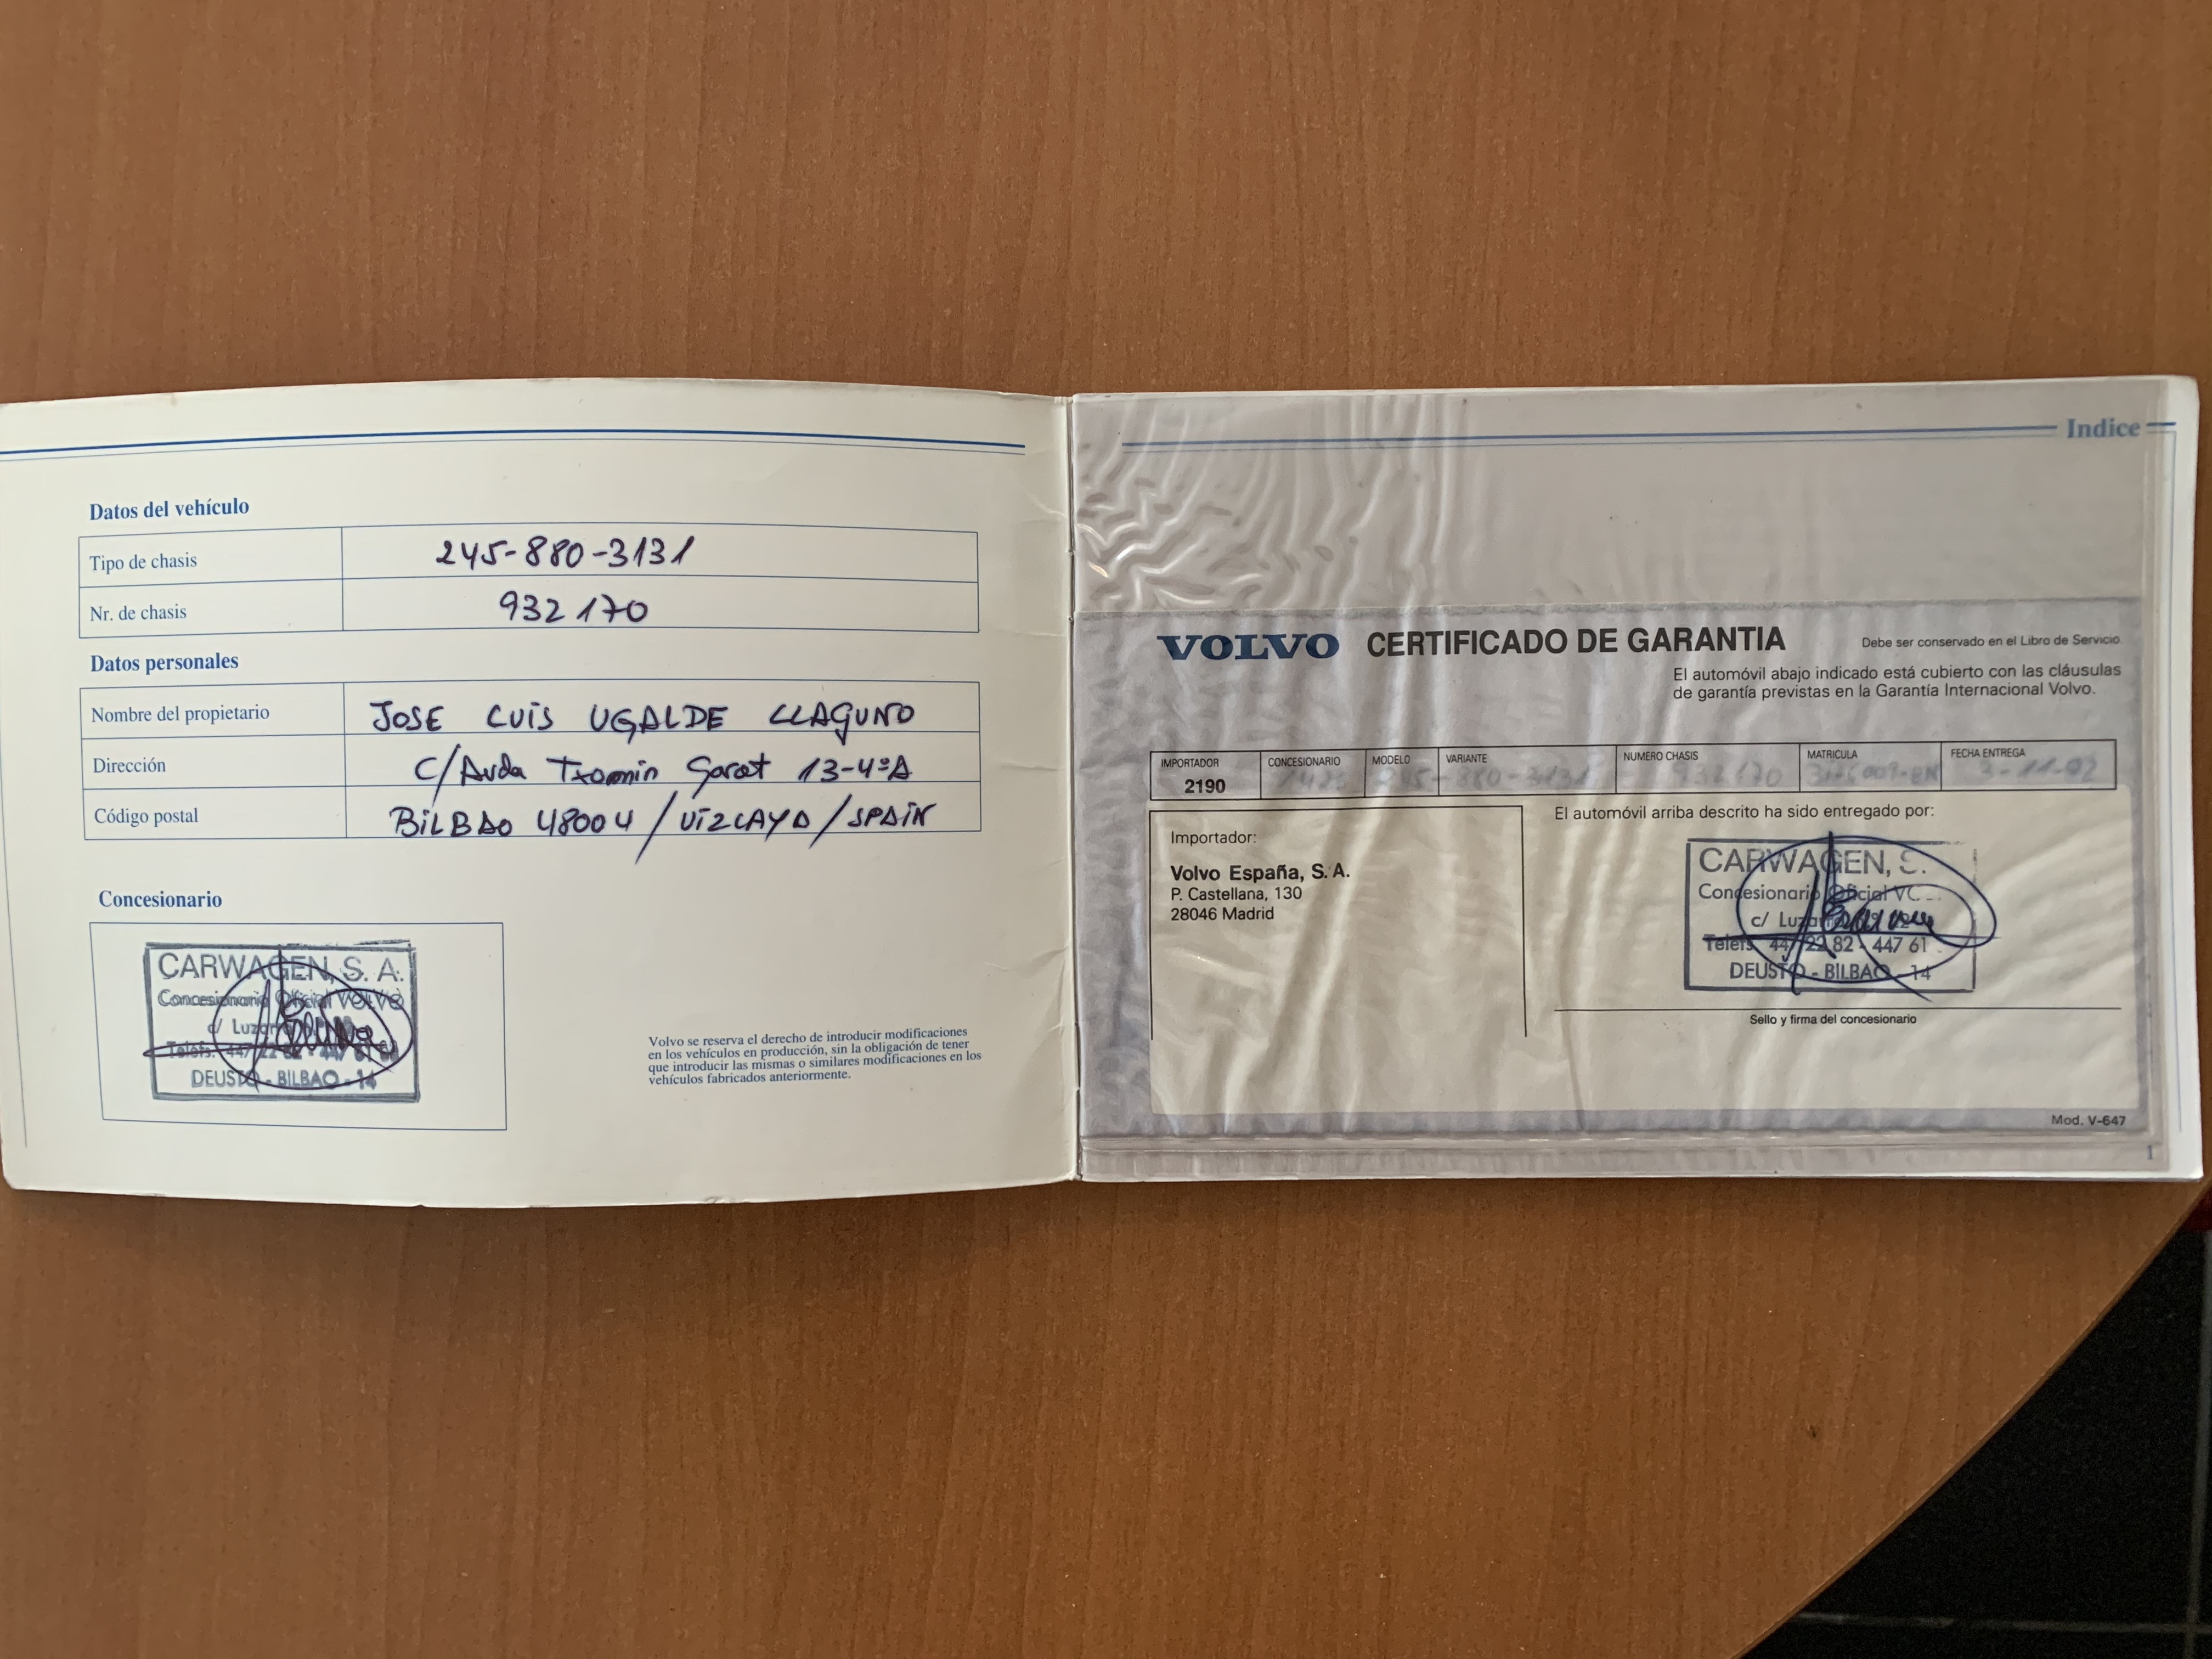 Datos del vehículo
Tipo de chasis 245-880-3131
Nr. de chasis 932170
Datos personales
Nombre del propietario JOSE LUIS UGALDE LLAGUNO
Dirección C/Avda Txomin Garat 13-4ºA
Código postal BILBAO 48004/VIZCAYA/SPAIN
Concesionario
CARWAGEN, S. A.
Concesionario Oficial VOLVO
c/
Teléfs. 447 22 82 - 447 61
DEUSTO - BILBAO - 14
Volvo se reserva el derecho de introducir modificaciones
en los vehículos en producción, sin la obligación de tener
que introducir las mismas o similares modificaciones en los
vehículos fabricados anteriormente.
Indice
VOLVO CERTIFICADO DE GARANTIA
Debe ser conservado en el Libro de Servicio
El automóvil abajo indicado está cubierto con las cláusulas
de garantía previstas en la Garantía Internacional Volvo.
IMPORTADOR CONCESIONARIO MODELO VARIANTE NUMERO CHASIS MATRICULA FECHA ENTREGA
2190 245-880-3131 932170 3-11-92
Importador:
Volvo España, S.A.
P. Castellana, 130
28046 Madrid
El automóvil arriba descrito ha sido entregado por:
CARWAGEN, S.
Concesionario Oficial VO
c/
Teléfs. 447 22 82 - 447 61
DEUSTO - BILBAO - 14
Sello y firma del concesionario
Mod. V-647
1